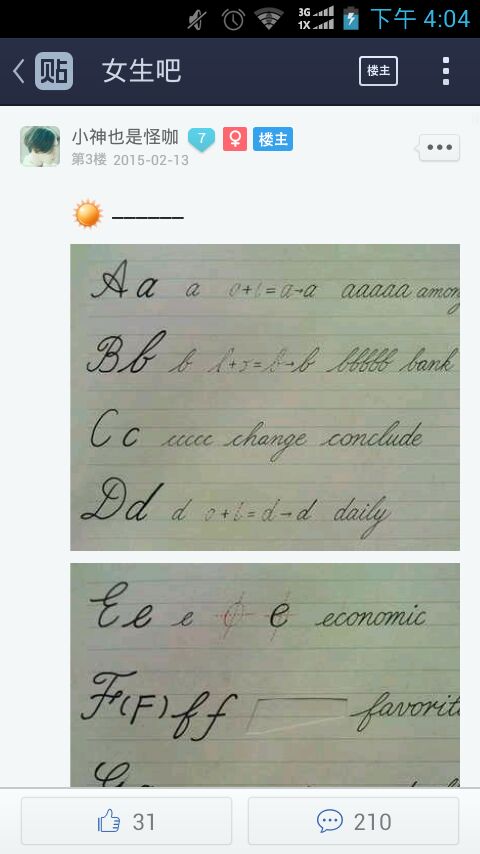 3G
1X
下午 4:04
贴 女生吧 楼主
小神也是怪咖 7 楼主
第3楼 2015-02-13
______
A a a o+l=a→a aaaaa among
B b b l+s=b→b bbbbb bank
C c ccccc change conclude
D d d o+l=d→d daily
E e e e economic
F(F) f f favorit
31 210